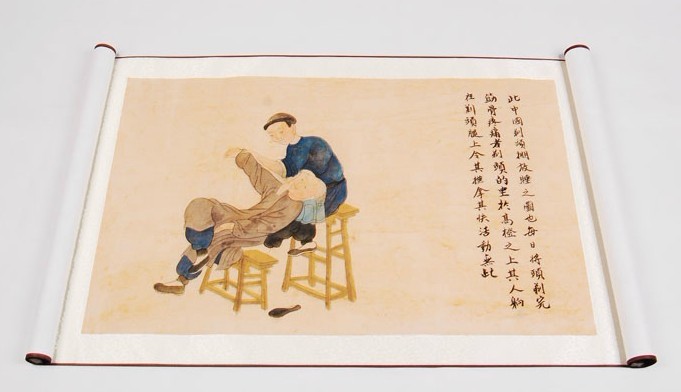 此中國剃頭棚放睡之圖也每日将頭剃完
筋骨疼痛者剃頭的坐於高橙之上其人躺
在剃頭腿上令其捶拿其快活動無比